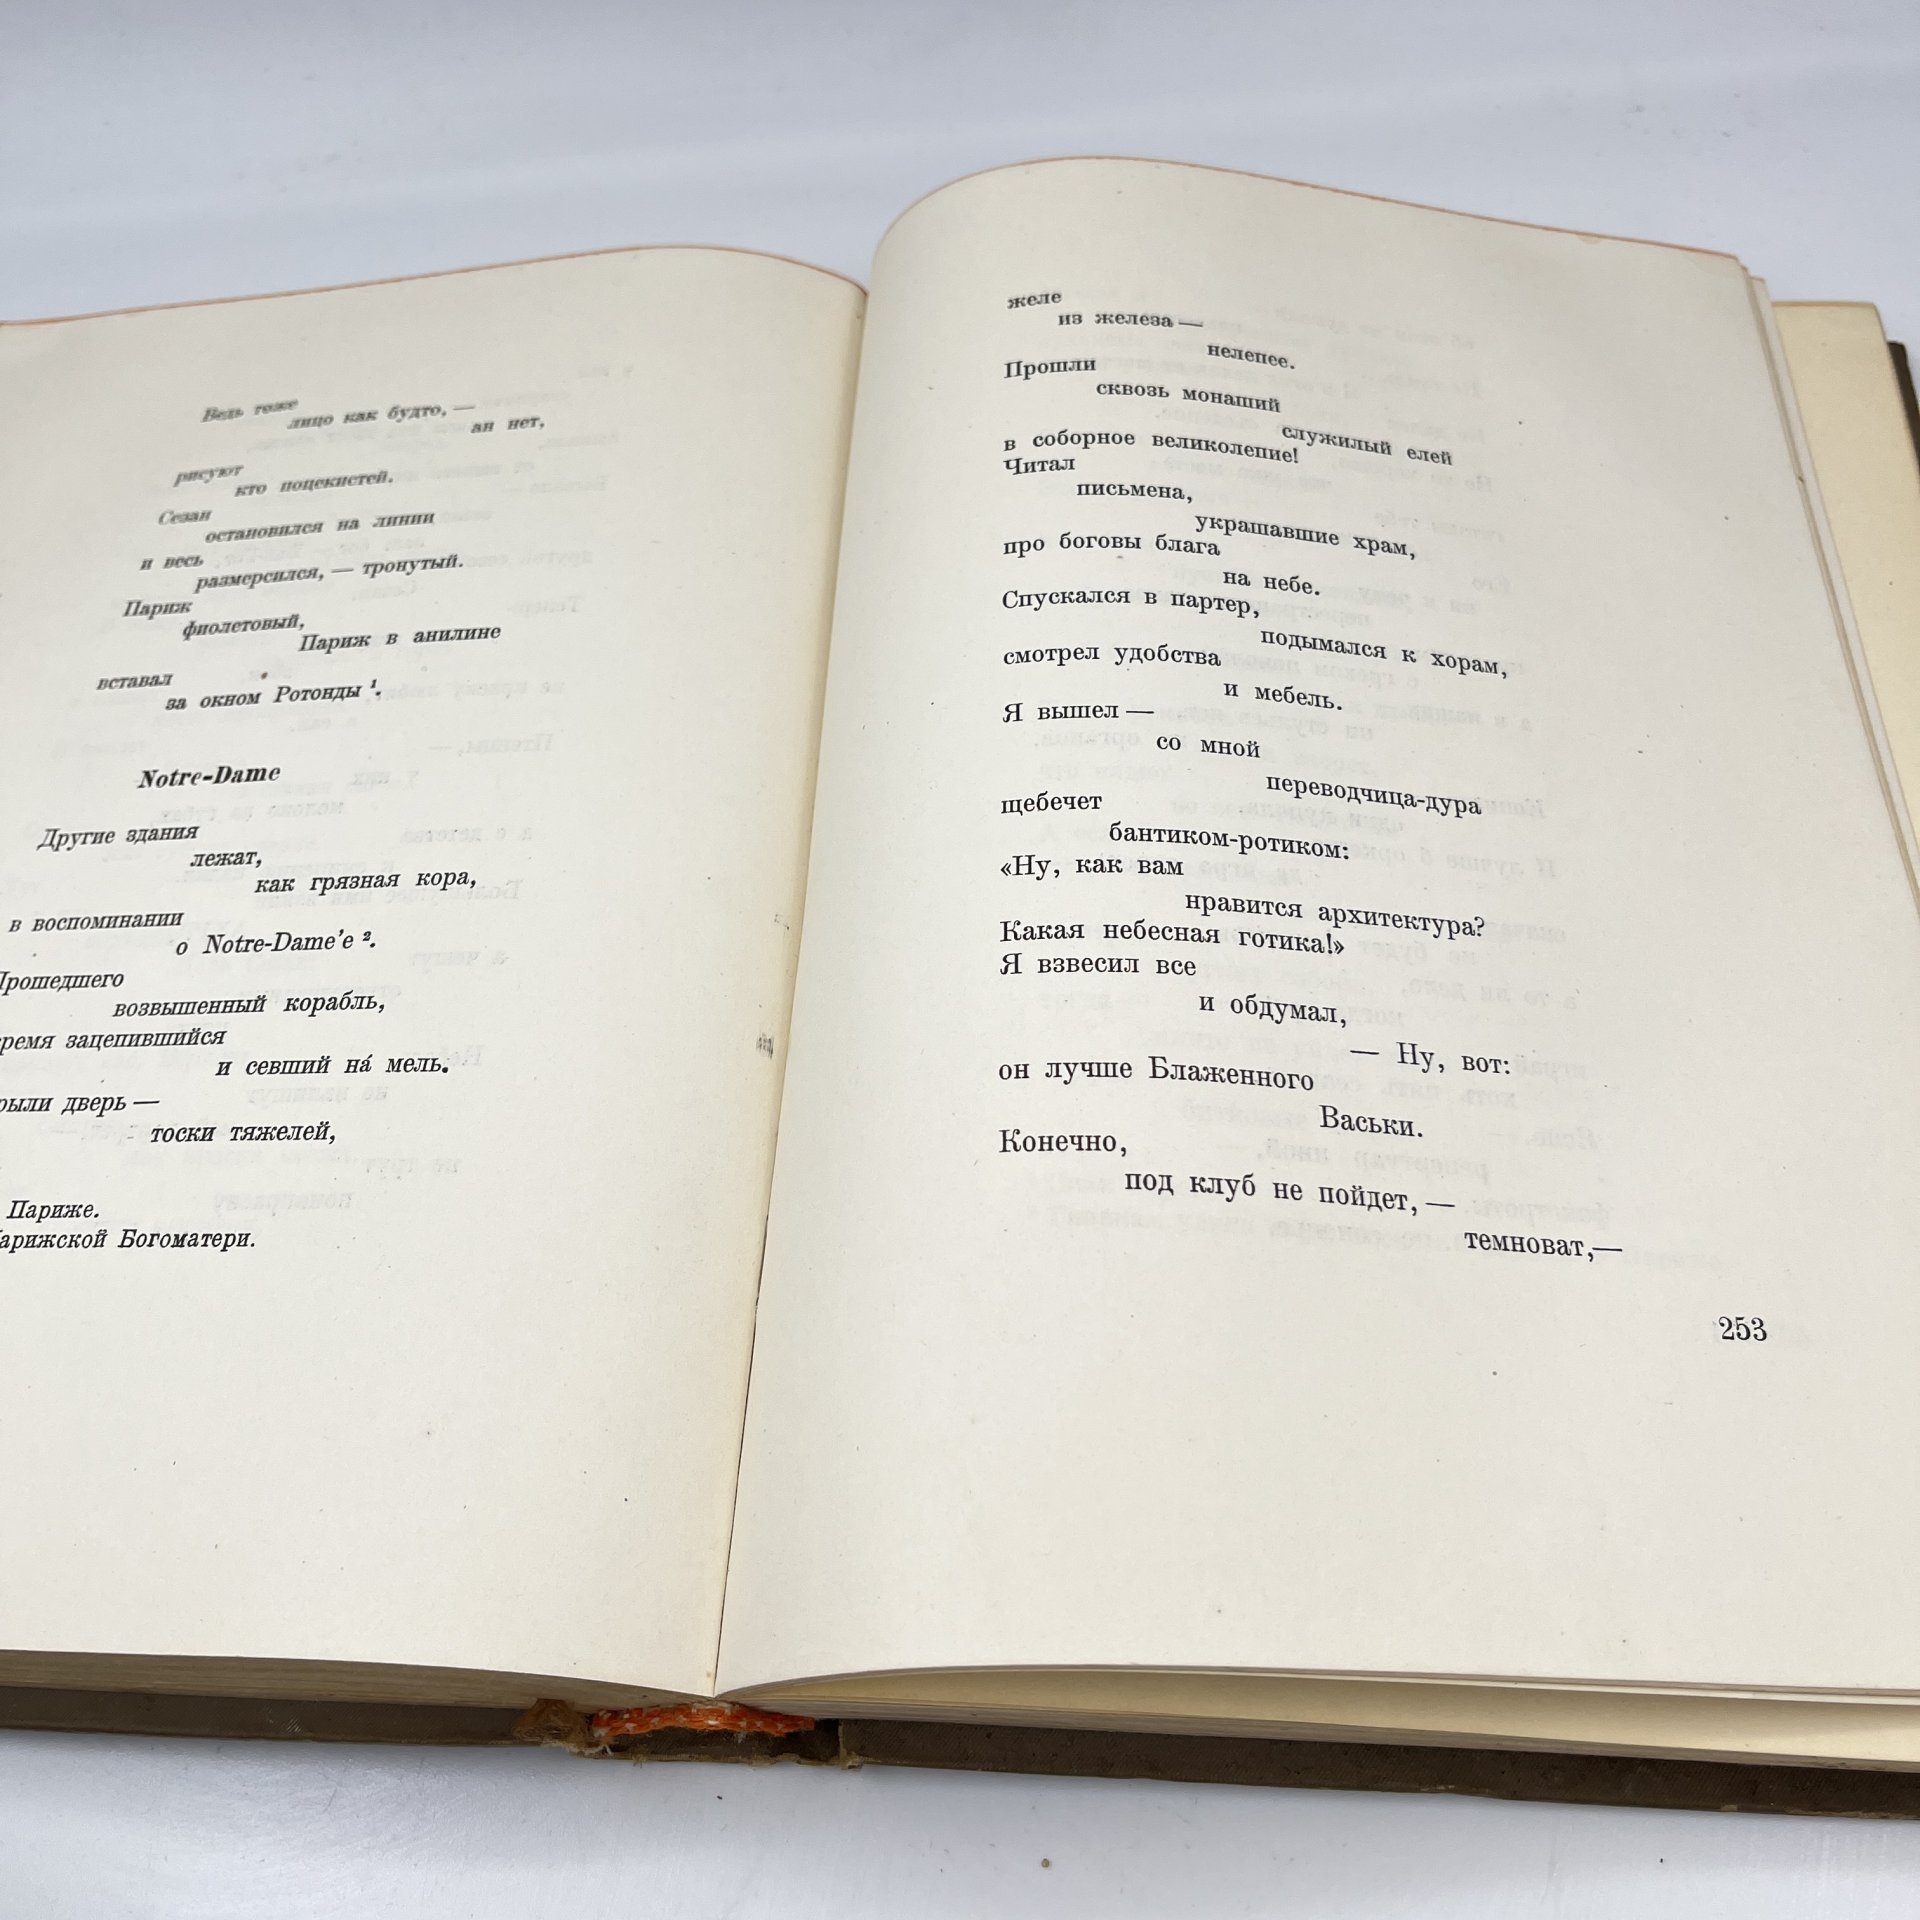 Ведь тоже
лицо как будто, —
ан нет,
рисуют
кто поцекистей.
Сезан
остановился на линии
и весь
размерсился, — тронутый.
Париж
фиолетовый,
Париж в анилине
вставал
за окном Ротонды ¹.
Notre-Dame
Другие здания
лежат,
как грязная кора,
в воспоминании
о Notre-Dame'е ².
Прошедшего
возвышенный корабль,
время зацепившийся
и севший на́ мель.
рыли дверь —
тоски тяжелей,
Париже.
Парижской Богоматери.
желе
из железа —
нелепее.
Прошли
сквозь монаший
служилый елей
в соборное великолепие!
Читал
письмена,
украшавшие храм,
про боговы блага
на небе.
Спускался в партер,
подымался к хорам,
смотрел удобства
и мебель.
Я вышел —
со мной
переводчица-дура
щебечет
бантиком-ротиком:
«Ну, как вам
нравится архитектура?
Какая небесная готика!»
Я взвесил все
и обдумал,
— Ну, вот:
он лучше Блаженного
Васьки.
Конечно,
под клуб не пойдет, —
темноват,—
253